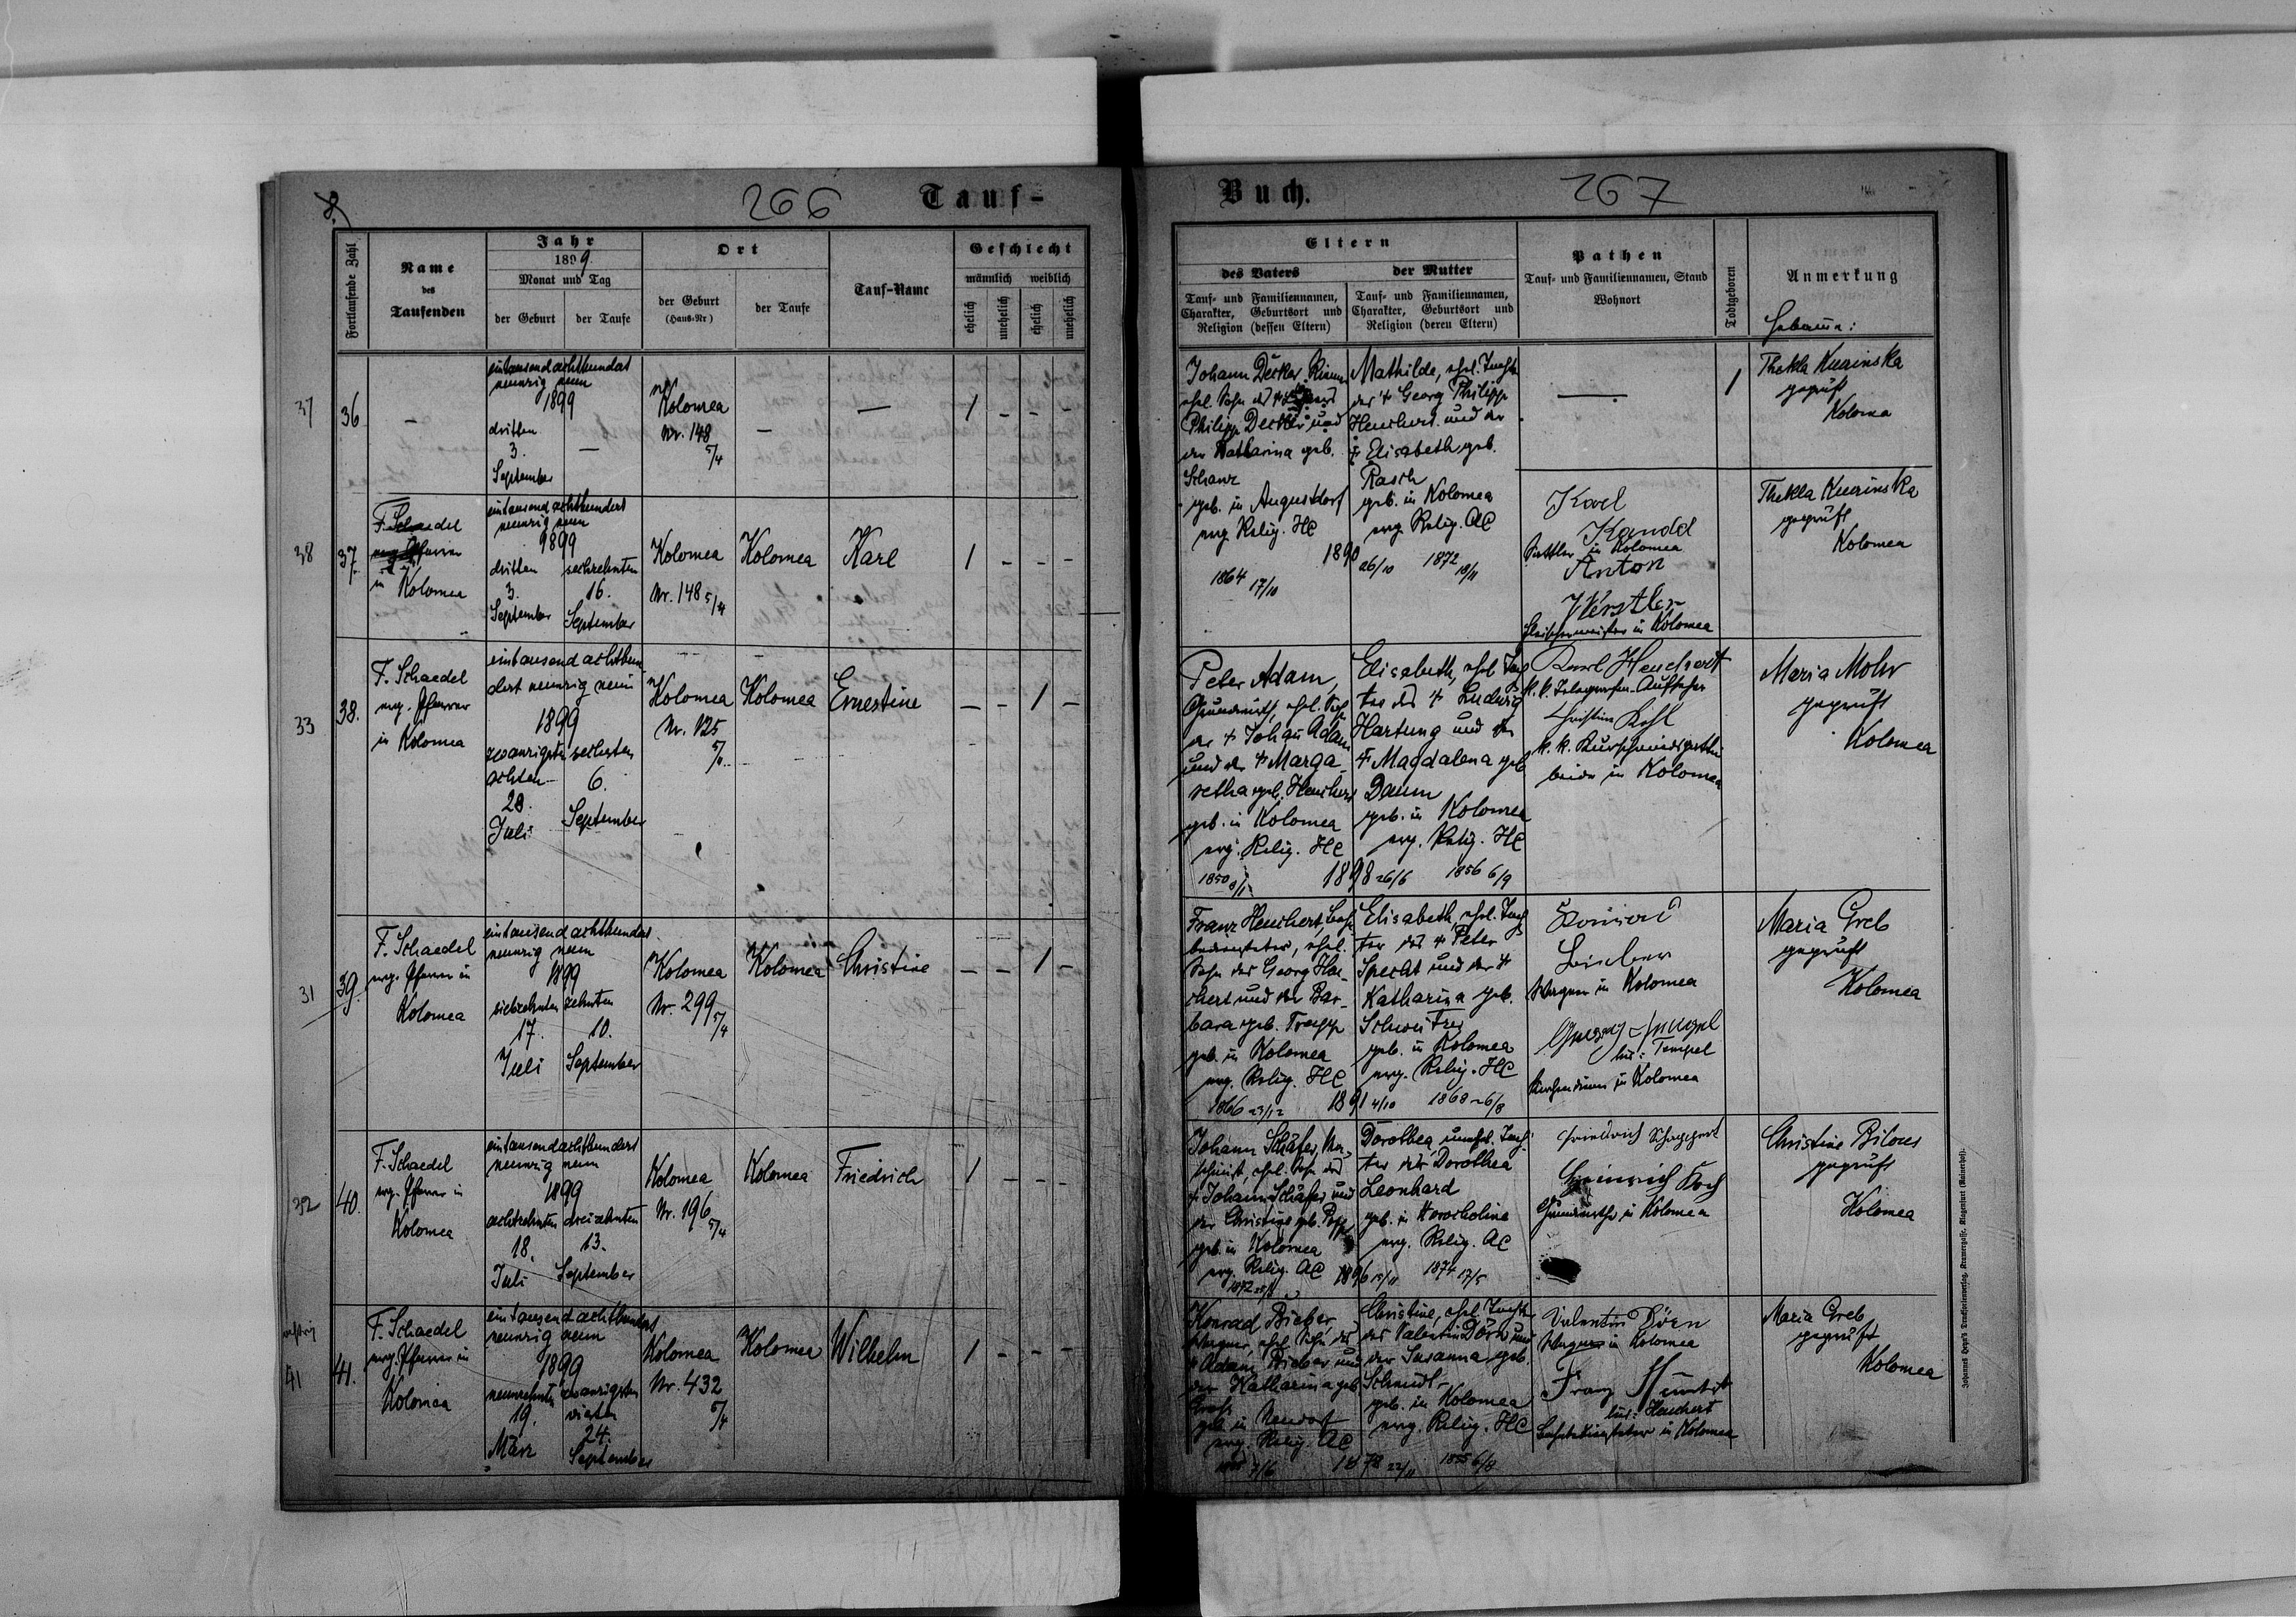 8.
266
Tauf-
Fortlaufende Zahl
Name
des
Taufenden
Jahr
1899
Monat und Tag
der Geburt
der Taufe
Ort
der Geburt
(Haus-Nr.)
der Taufe
Tauf-Name
Geschlecht
männlich
weiblich
ehelich
unehelich
ehelich
unehelich
37
36
–
eintausendachthundert
neunzig neun
1899
dritten
3.
September
–
Kolomea
Nr. 148
5/4
–
–
1 - - -
38
37.
F. Schaedel
evg. Pfarrer
in Kolomea
eintausendachthundert
neunzig neun
1899
dritten
3.
September
sechzehnten
16.
September
Kolomea
Nr. 148 5/4
Kolomea
Karl
1 - - -
33
38.
F. Schaedel
evg. Pfarrer
in Kolomea
eintausend achthun
dert neunzig neun
1899
zwanzigsten
achten
28.
Juli
sechsten
6.
September
Kolomea
Nr. 125
Kolomea
Ernestine
- - 1 -
31
39.
F. Schaedel
evg. Pfarrer in
Kolomea
eintausend achthundert
neunzig neun
1899
siebzehnten
17.
Juli
zehnten
10.
September
Kolomea
Nr. 299 5/4
Kolomea
Christine
- - 1 -
32
40.
F. Schaedel
evg. Pfarrer in
Kolomea
eintausendachthundert
neunzig neun
1899
achtzehnten
18.
Juli
dreizehnten
13.
September
Kolomea
Nr. 196 5/4
Kolomea
Friedrich
1 - - -
41
41.
F. Schaedel
evg. Pfarrer in
Kolomea
eintausend achthundert
neunzig neun
1899
neunzehnten
19.
März
zwanzigsten
vierten
24.
September
Kolomea
Nr. 432
5/4
Kolomea
Wilhelm
1 - - -
Buch.
267
Eltern
des Vaters
Tauf- und Familiennamen,
Charakter, Geburtsort und
Religion (dessen Eltern)
der Mutter
Tauf- und Familiennamen,
Charakter, Geburtsort und
Religion (deren Eltern)
Pathen
Tauf- und Familiennamen, Stand
Wohnort
Todtgeboren
Anmerkung
Hebamme:
Johann Decker, Riemer
ehel. Sohn des
Philipp Decker und
der Katharina geb.
Schanz
geb. in Augustdorf
evg. Relig. HC
1864 17/10
1890 26/10
Mathilde, ehel. Tochter
des † Georg Philipp
Heuchert und der
† Elisabeth geb.
Rasch
geb. in Kolomea
evg. Relig. AC
1872 18/11
–
1
Thekla Kurinska
geprüft
Kolomea
Karl
Kandel
Sattler in Kolomea
Anton
Kerstler
Fleischermeister in Kolomea
Thekla Kurinska
geprüft
Kolomea
Peter Adam,
Grundwirth, ehel. Sohn
des † Johann Adam
und der † Marga-
retha geb. Heuchert
geb. in Kolomea
evg. Relig. HC
1850
1898 26/6
Elisabeth, ehel. Toch
ter des † Ludwig
Hartung und der
† Magdalena geb
Daum
geb. in Kolomea
evg. Relig. HC
1856 6/9
Karl Heuchert
k. k. Telegrafen-Aufseher
Christine Kohl
k. k. Kurschmiedsgattin
beide in Kolomea
Maria Mohr
geprüft
Kolomea
Franz Heuchert, Bahn
bediensteter, ehel.
Sohn des Georg Heu-
chert und der Bar-
bara geb. Trapp
geb. in Kolomea
evg. Relig. HC
1866 23/12
1891 4/10
Elisabeth, ehel. Toch
ter des † Peter
Specht und der †
Katharina geb.
geb. in Kolomea
evg. Relig. HC
1868 26/8
Wagner in Kolomea
lies: Tempel
Kirchendiener in Kolomea
Maria Greb
geprüft
Kolomea
Johann Schäfer, Ma-
schinist, ehel. Sohn des
† Johann Schäfer und
der Christine geb. Popp
geb. in Kolomea
evg. Relig. AC
1872
1896 15/11
Dorothea, unehel. Toch-
ter der Dorothea
Leonhard
geb. in
evg. Relig. AC
1874 17/5
Heinrich Koch
Grundwirthe in Kolomea
Christine Bilous
geprüft
Kolomea
Konrad Bieber
Wagner, ehel. Sohn des
† Adam Bieber und
der Katharina geb.
Groß
geb. in Neudorf
evg. Relig. AC
7/6
1878 22/11
Christine, ehel. Tochter
des Valentin Dörn und
der Susanna geb.
Schmidt
geb. in Kolomea
evg. Relig. HC
1855 6/8
Valentin Dörn
Wagner in Kolomea
Franz
lies: Heuchert
Bahnbediensteter in Kolomea
Maria Greb
geprüft
Kolomea